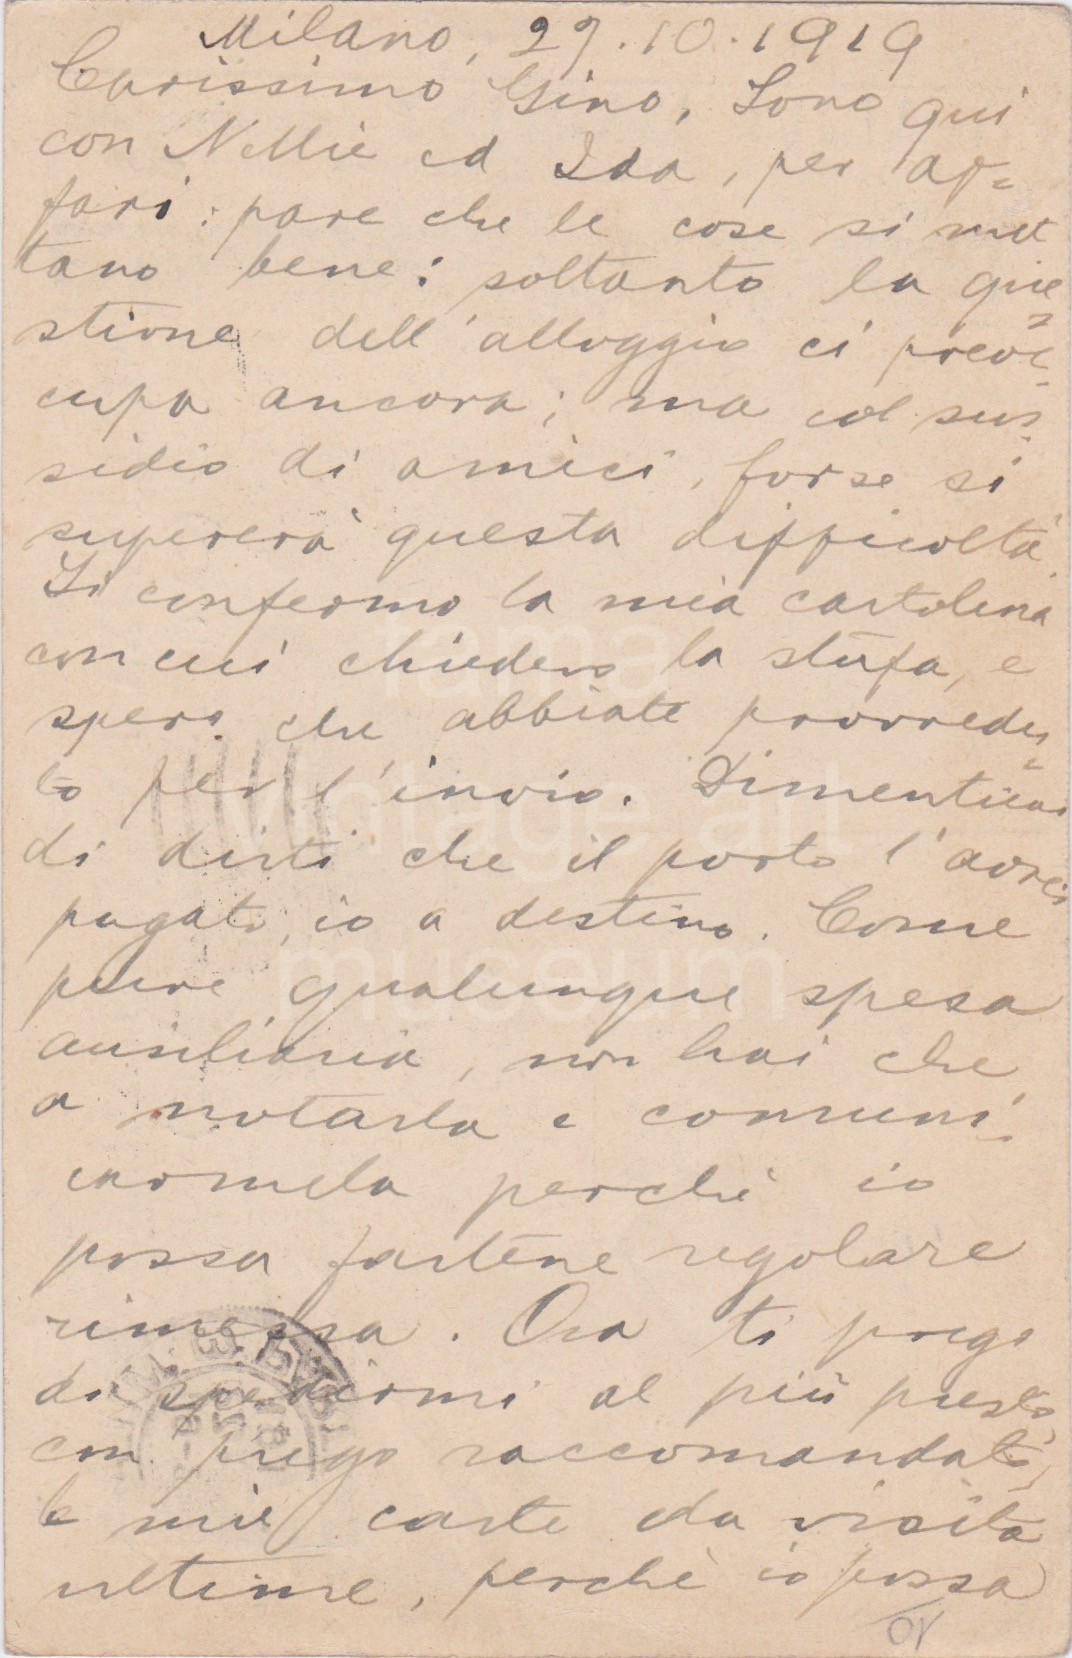 Milano, 27.10.1919
Carissimo Gino, Sono qui
con Nellie ed Ida, per af=
fari: pare che le cose si met
tano bene: soltanto la que=
stione dell'alloggio ci preoc-
cupa ancora; ma col sus-
sidio di amici, forse si
supererà questa difficoltà.
Ti confermo la mia cartolina
con cui chiedevo la stufa, e
spero che abbiate provvedu=
to per l'invio. Dimenticai
di dirti che il porto l'avrei
pagato io a destino. Come
pure qualunque spesa
ausiliaria, non hai che
a notarla e comuni-
carmela perchè io
possa fartene regolare
rimessa. Ora ti prego
di spedirmi al più presto,
con piego raccomandato,
le mie carte da visita
ultime, perchè io possa
rama
vintage art
museum